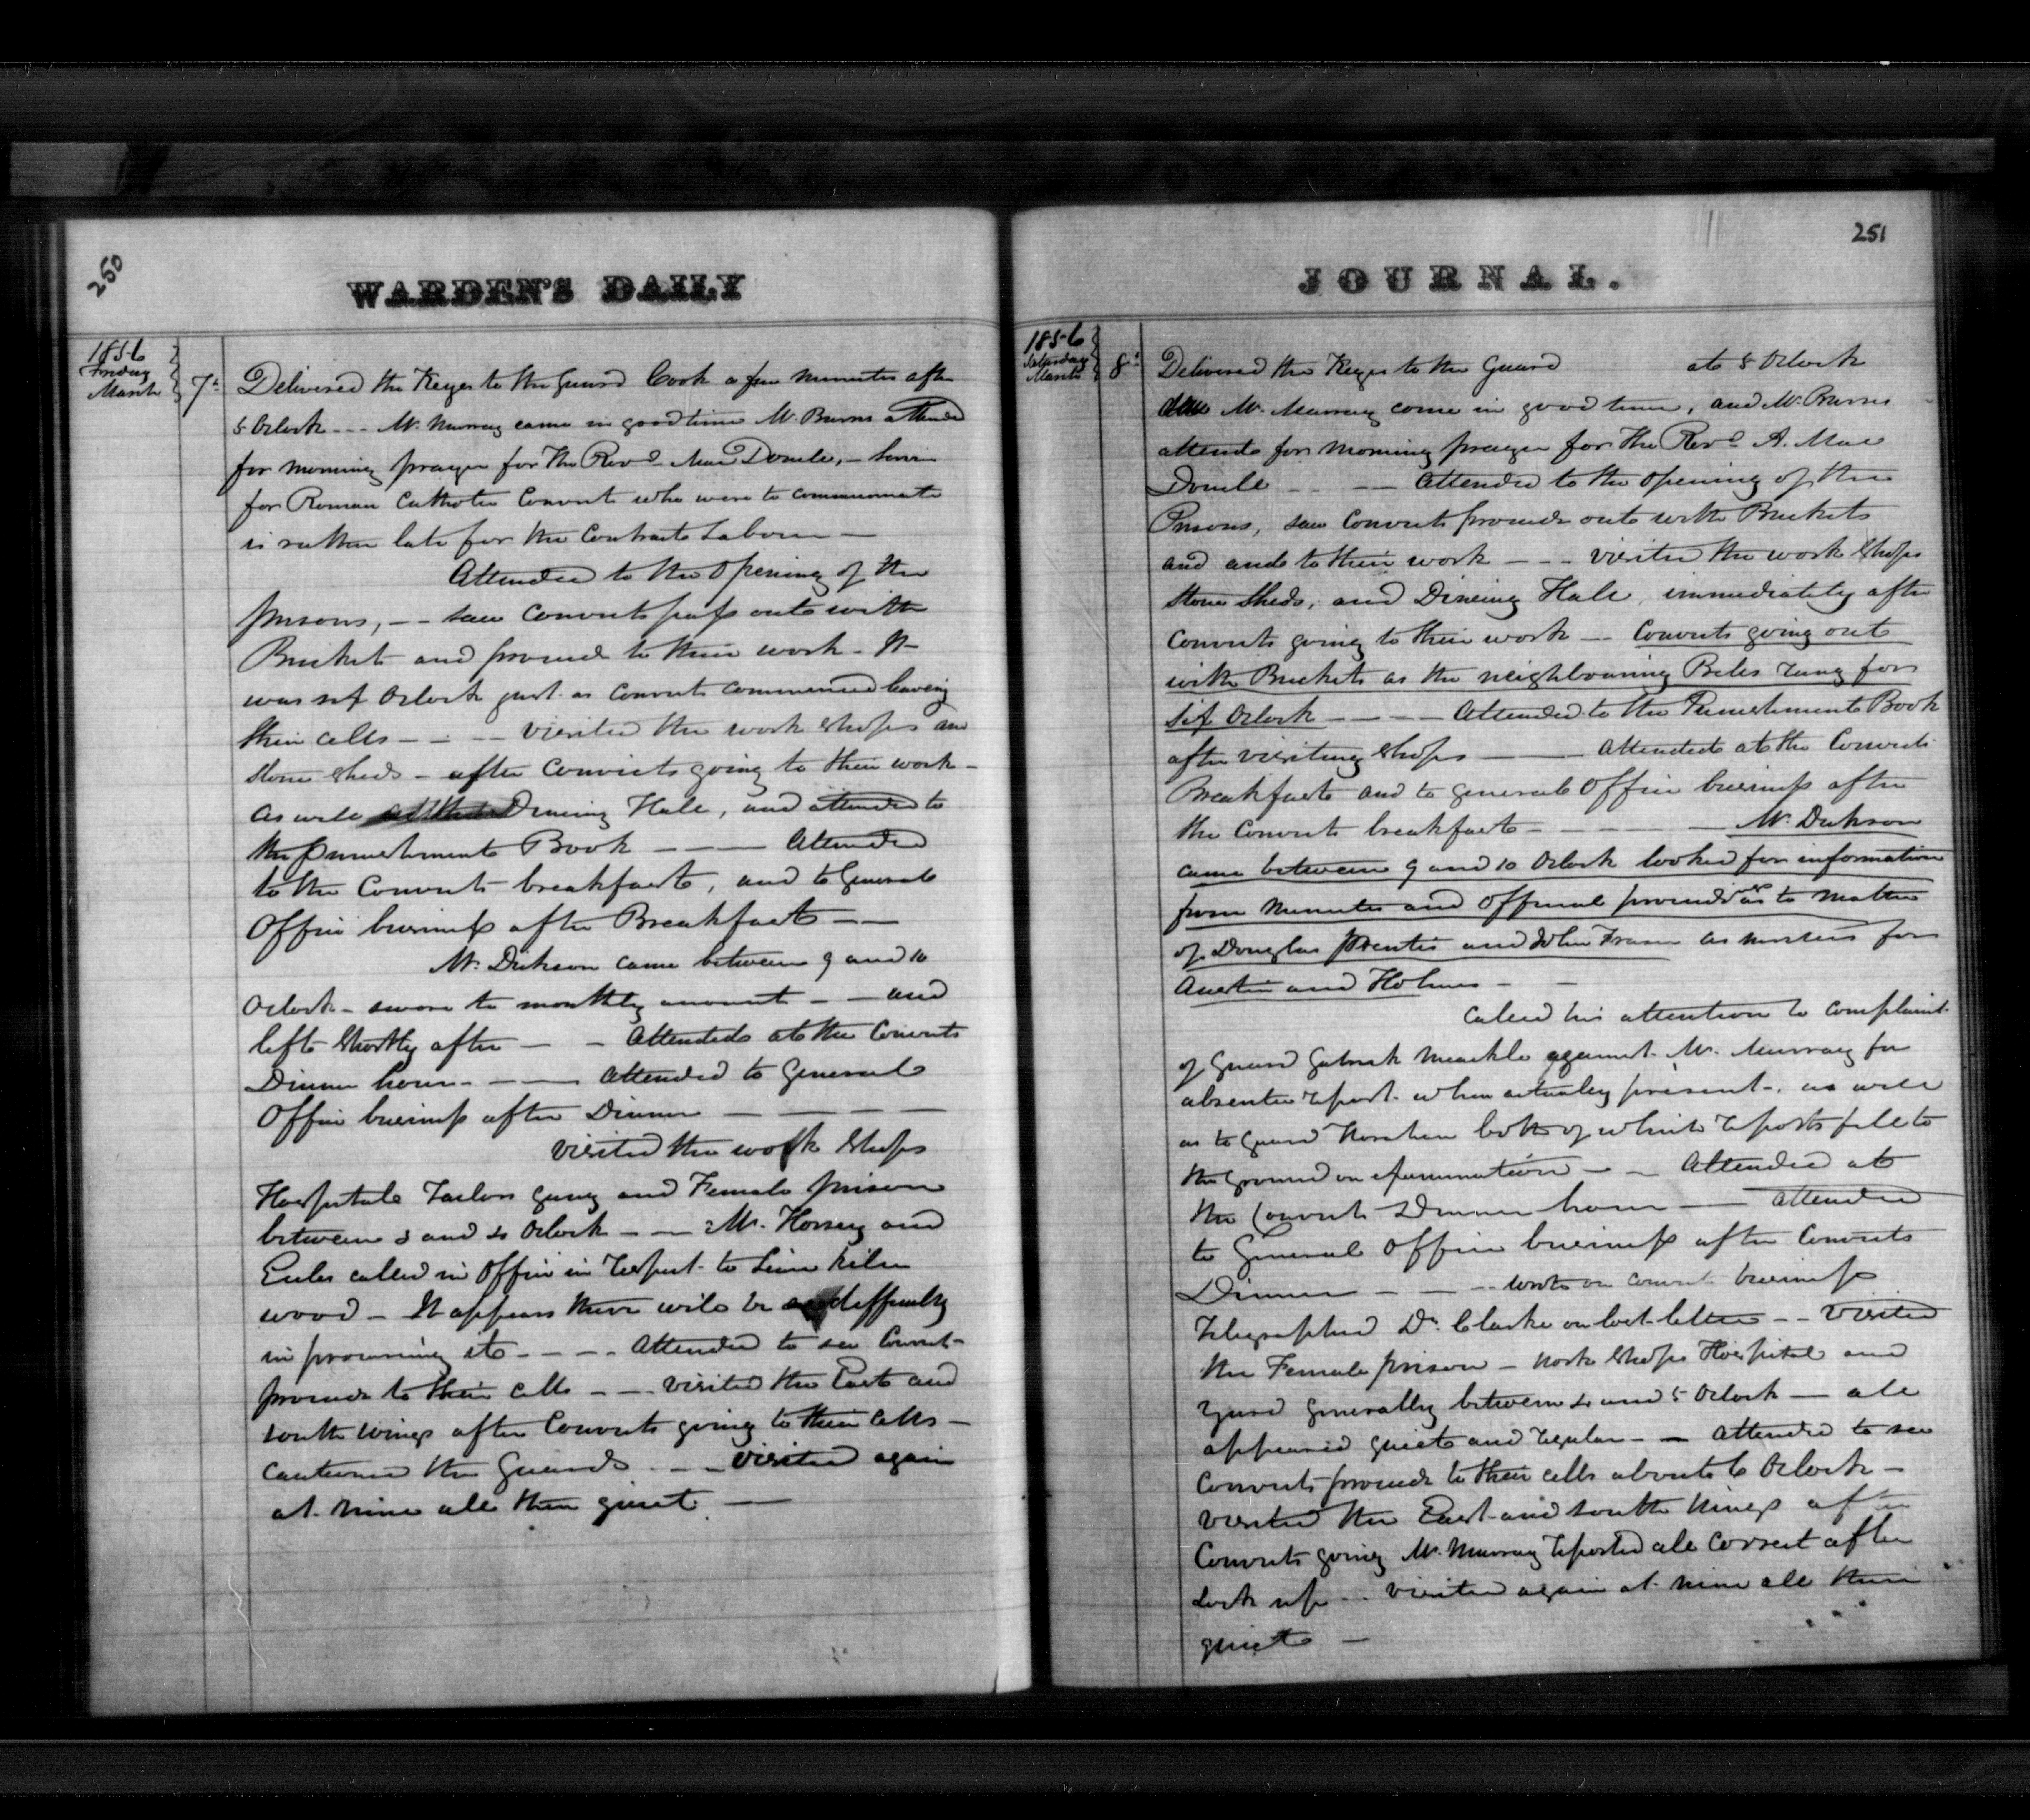 250
WARDEN'S DAILY
1856
Friday
March 7th
Delivered the Keys to the Guard Cook a few minutes after
5 OClock --- Mr. Murray came in good time Mr. Burns attended
for morning prayer for The Revd. Mac Donell, -
for Roman Catholic Convicts who were to communicate
is rather late for the Contract Labour —
Attended to the Opening of the
prisons, -- saw Convicts pass out with
Buckets and proceed to their work - It
was six OClock just as Convicts commenced leaving
their cells - - -- visited the work shops and
stone sheds - after Convicts going to their work -
As well as the Dineing Hall, and attended to
the Punishment Book --- Attended
to the Convicts breakfast, and to General
Office business after Breakfast --
Mr. Dickson came between 9 and 10
OClock - swore to monthly account - - and
left shortly after - - Attended at the Convicts
Dinner hour - -- Attended to General
Office business after Dinner - - - -
visited the work shops
Hospital Tailors gang and Female prison
between 3 and 4 OClock - - Mr. Horsey and
called in Office in respect to Lime kiln
wood - It appears there will be difficulty
in procuring it - - - - Attended to see Convicts
proceed to their cells - - visited the East and
south wings after Convicts going to their cells -
cautioned the Guards - - - visited again
at nine all then quiet —
251
JOURNAL.
1856
Saturday
March 8th
Delivered the Keys to the Guard at 5 OClock
Mr. Murray come in good time, and Mr. Burns
attends for morning prayer for The Revd. A. Mac
Donell - - -- Attended to the Opening of the
Prisons, saw Convicts proceed out with Buckets
and and to their work --- visited the work shops
stone sheds, and Dineing Hall, immediately after
Convicts going to their work -- Convicts going out
with Buckets as the neighbouring Bells rung for
six OClock - - - - Attended to the Punishment Book
after visiting shops - - Attended at the Convicts
Breakfast and to general Office business after
the Convicts breakfast - - - Mr. Dickson
came between 9 and 10 OClock looked for information
from Minutes and Official proceed as to matter
of Douglas Prentis and John Fraser as for
Austin and Holmes - -
Called his attention to complaint
of Guard Gabriel Meackle against Mr. Murray for
absentee report when actually present - as well
as to Guard both of which reports fell to
the ground on examination - - Attended at
the Convicts Dinner hour -- attended
to General Office business after Convicts
Dinner - - -- wrote on convict business
Telegraphed Dr. Clarke on lost letter -- visited
the Female prison - work shops Hospital and
Yard generally between 4 and 5 OClock - all
appeared quiet and regular - - Attended to see
Convicts proceed to their cells about 6 OClock -
visited the East and south wings after
Convicts going Mr. Murray reported all correct after
Lock up -- visited again at nine all then
quiet —